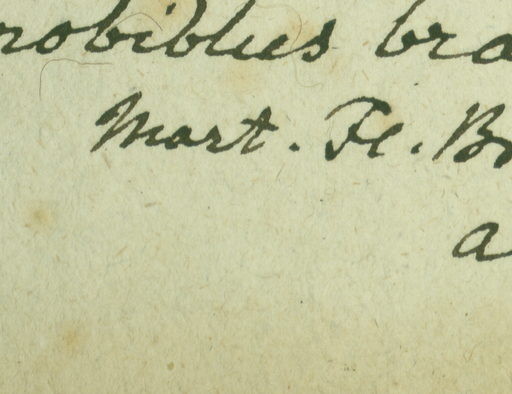 robiblus bra
Mart. Fl. Br
a